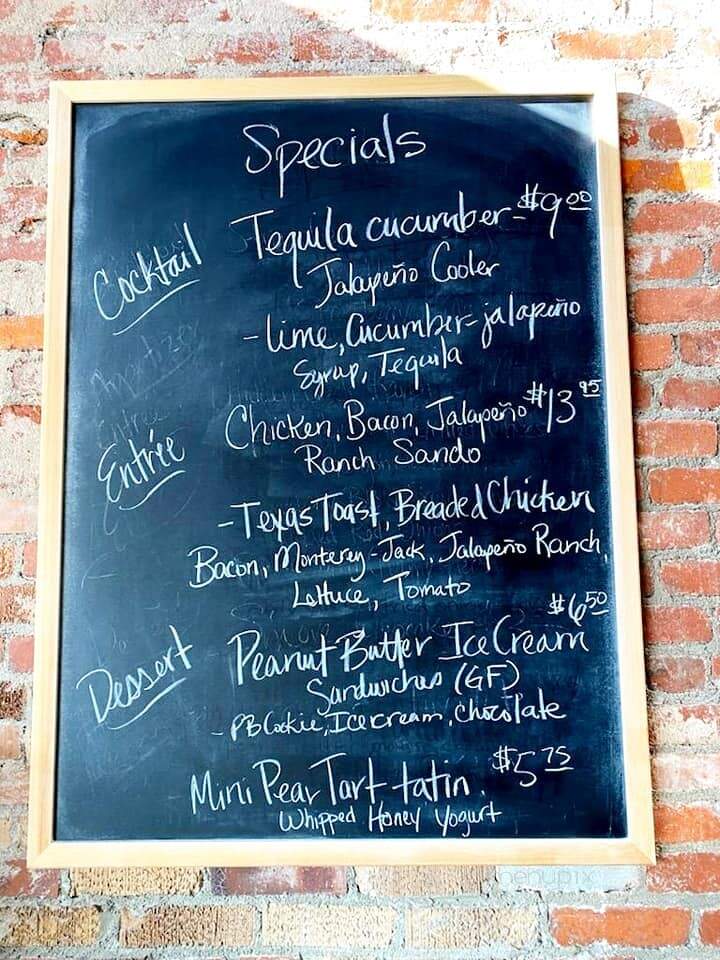 Specials
Cocktail
Tequila cucumber - $9.00
Jalapeño Cooler
- lime, Cucumber-jalapeño
Syrup, Tequila
Entrée
Chicken, Bacon, Jalapeño $13.95
Ranch Sando
- Texas Toast, Breaded Chicken
Bacon, Monterey-Jack, Jalapeño Ranch,
Lettuce, Tomato
Dessert
$6.50
Peanut Butter Ice Cream
Sandwiches (GF)
- PB Cookie, Ice cream, chocolate
Mini Pear Tart tatin. $5.75
Whipped Honey Yogurt
menupix